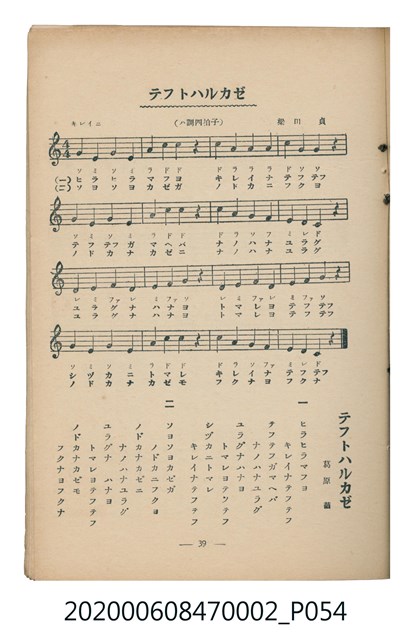 テフトハルカゼ
キレイニ
(ハ調四拍子)
貞
4
4
ソミソミラドド ドララドソソ
(一)ヒラヒラマフヨ キレイナテフテフ
(二)ソヨソヨカゼガ ノドカニフクヨ
テフテフガマヘバ ナノハナユラグ
ノドカナカゼニ ナノハナユラグ
ユラグナハナヨ トマレヨテフテフ
ユラグナハナヨ トマレヨテフテフ
シヅカニトマレ キレイナテフテフ
ノドカナカゼモ フクナヨフクナ
テフトハルカゼ
葛原𦾔
一
ヒラヒラマフヨ
キレイナテフテフ
テフテフガマヘバ
ナノハナユラグ
ユラグナハナヨ
トマレヨテフテフ
シヅカニトマレ
キレイナテフテフ
二
ソヨソヨカゼガ
ノドカニフクヨ
ノドカナカゼニ
ナノハナユラグ
ユラグナ ハナヨ
トマレヨテフテフ
ノドカナカゼモ
フクナヨフクナ
— 39 —
202000608470002_P054